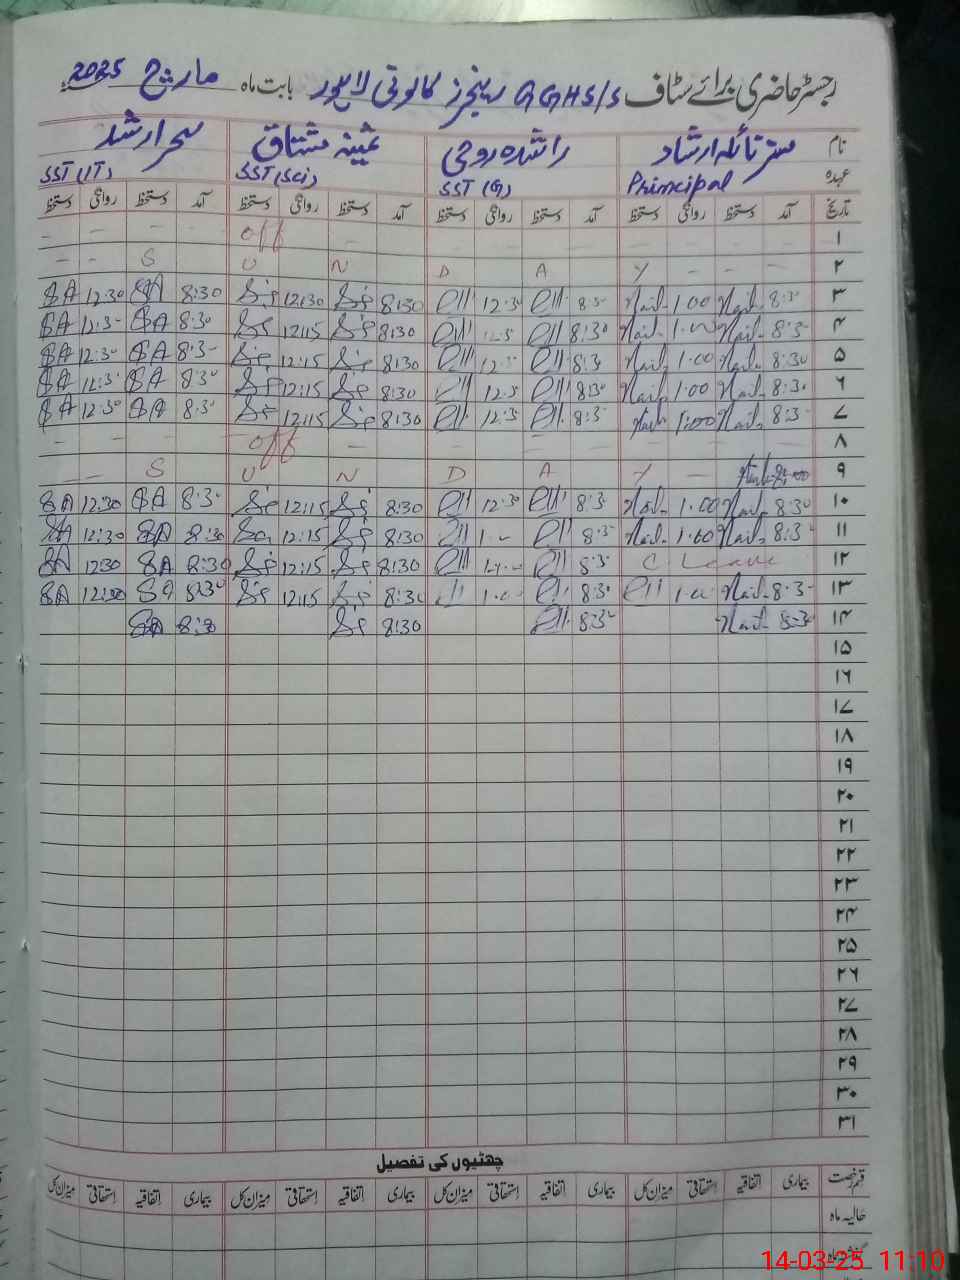 رجسٹر حاضری برائے سٹاف GGHS/S رینجرز کالونی لاہور بابت ماہ مارچ 2025
نام مسز نائلہ ارشاد راشدہ روحی ثمینہ مشتاق سحر ارشد
عہدہ Principal SST (G) SST (Sci) SST (IT)
تاریخ آمد دستخط روانگی دستخط آمد دستخط روانگی دستخط آمد دستخط روانگی دستخط آمد دستخط روانگی دستخط
۱ - off - - - -
۲ S U N D A Y - - -
۳ 8:30 1.00 8:30 12:30 8:30 12:30 8:30 12:30
۴ 8:30 1.00 8:30 8:30 12:15 8:30 12:30
۵ 8:30 1.00 8:30 12:30 8:30 12:15 8:30 12:30
۶ 8:30 1.00 8:30 12:30 8:30 12:15 8:30 12:30
۷ 8:30 1:00 8:30 12:30 8:30 12:15 8:30 12:30
۸ - off - - -
۹ S U N D A Y -
۱۰ 8:30 1.00 8:30 12:30 8:30 12:15 8:30 12:30
۱۱ 8:30 1.00 8:30 1.00 8:30 12:15 8:30 12:30
۱۲ C Leave 8:30 1.00 8:30 12:15 8:30 12:30
۱۳ 8:30 1.00 8:30 1.00 8:30 12:15 8:30 12:30
۱۴ 8:30 8:30 8:30 8:30
۱۵
۱۶
۱۷
۱۸
۱۹
۲۰
۲۱
۲۲
۲۳
۲۴
۲۵
۲۶
۲۷
۲۸
۲۹
۳۰
۳۱
چھٹیوں کی تفصیل
قسم رخصت بیماری اتفاقیہ استحقاقی میزان کل بیماری اتفاقیہ استحقاقی میزان کل بیماری اتفاقیہ استحقاقی میزان کل بیماری اتفاقیہ استحقاقی میزان کل
حالیہ ماہ
14-03-25 11:10